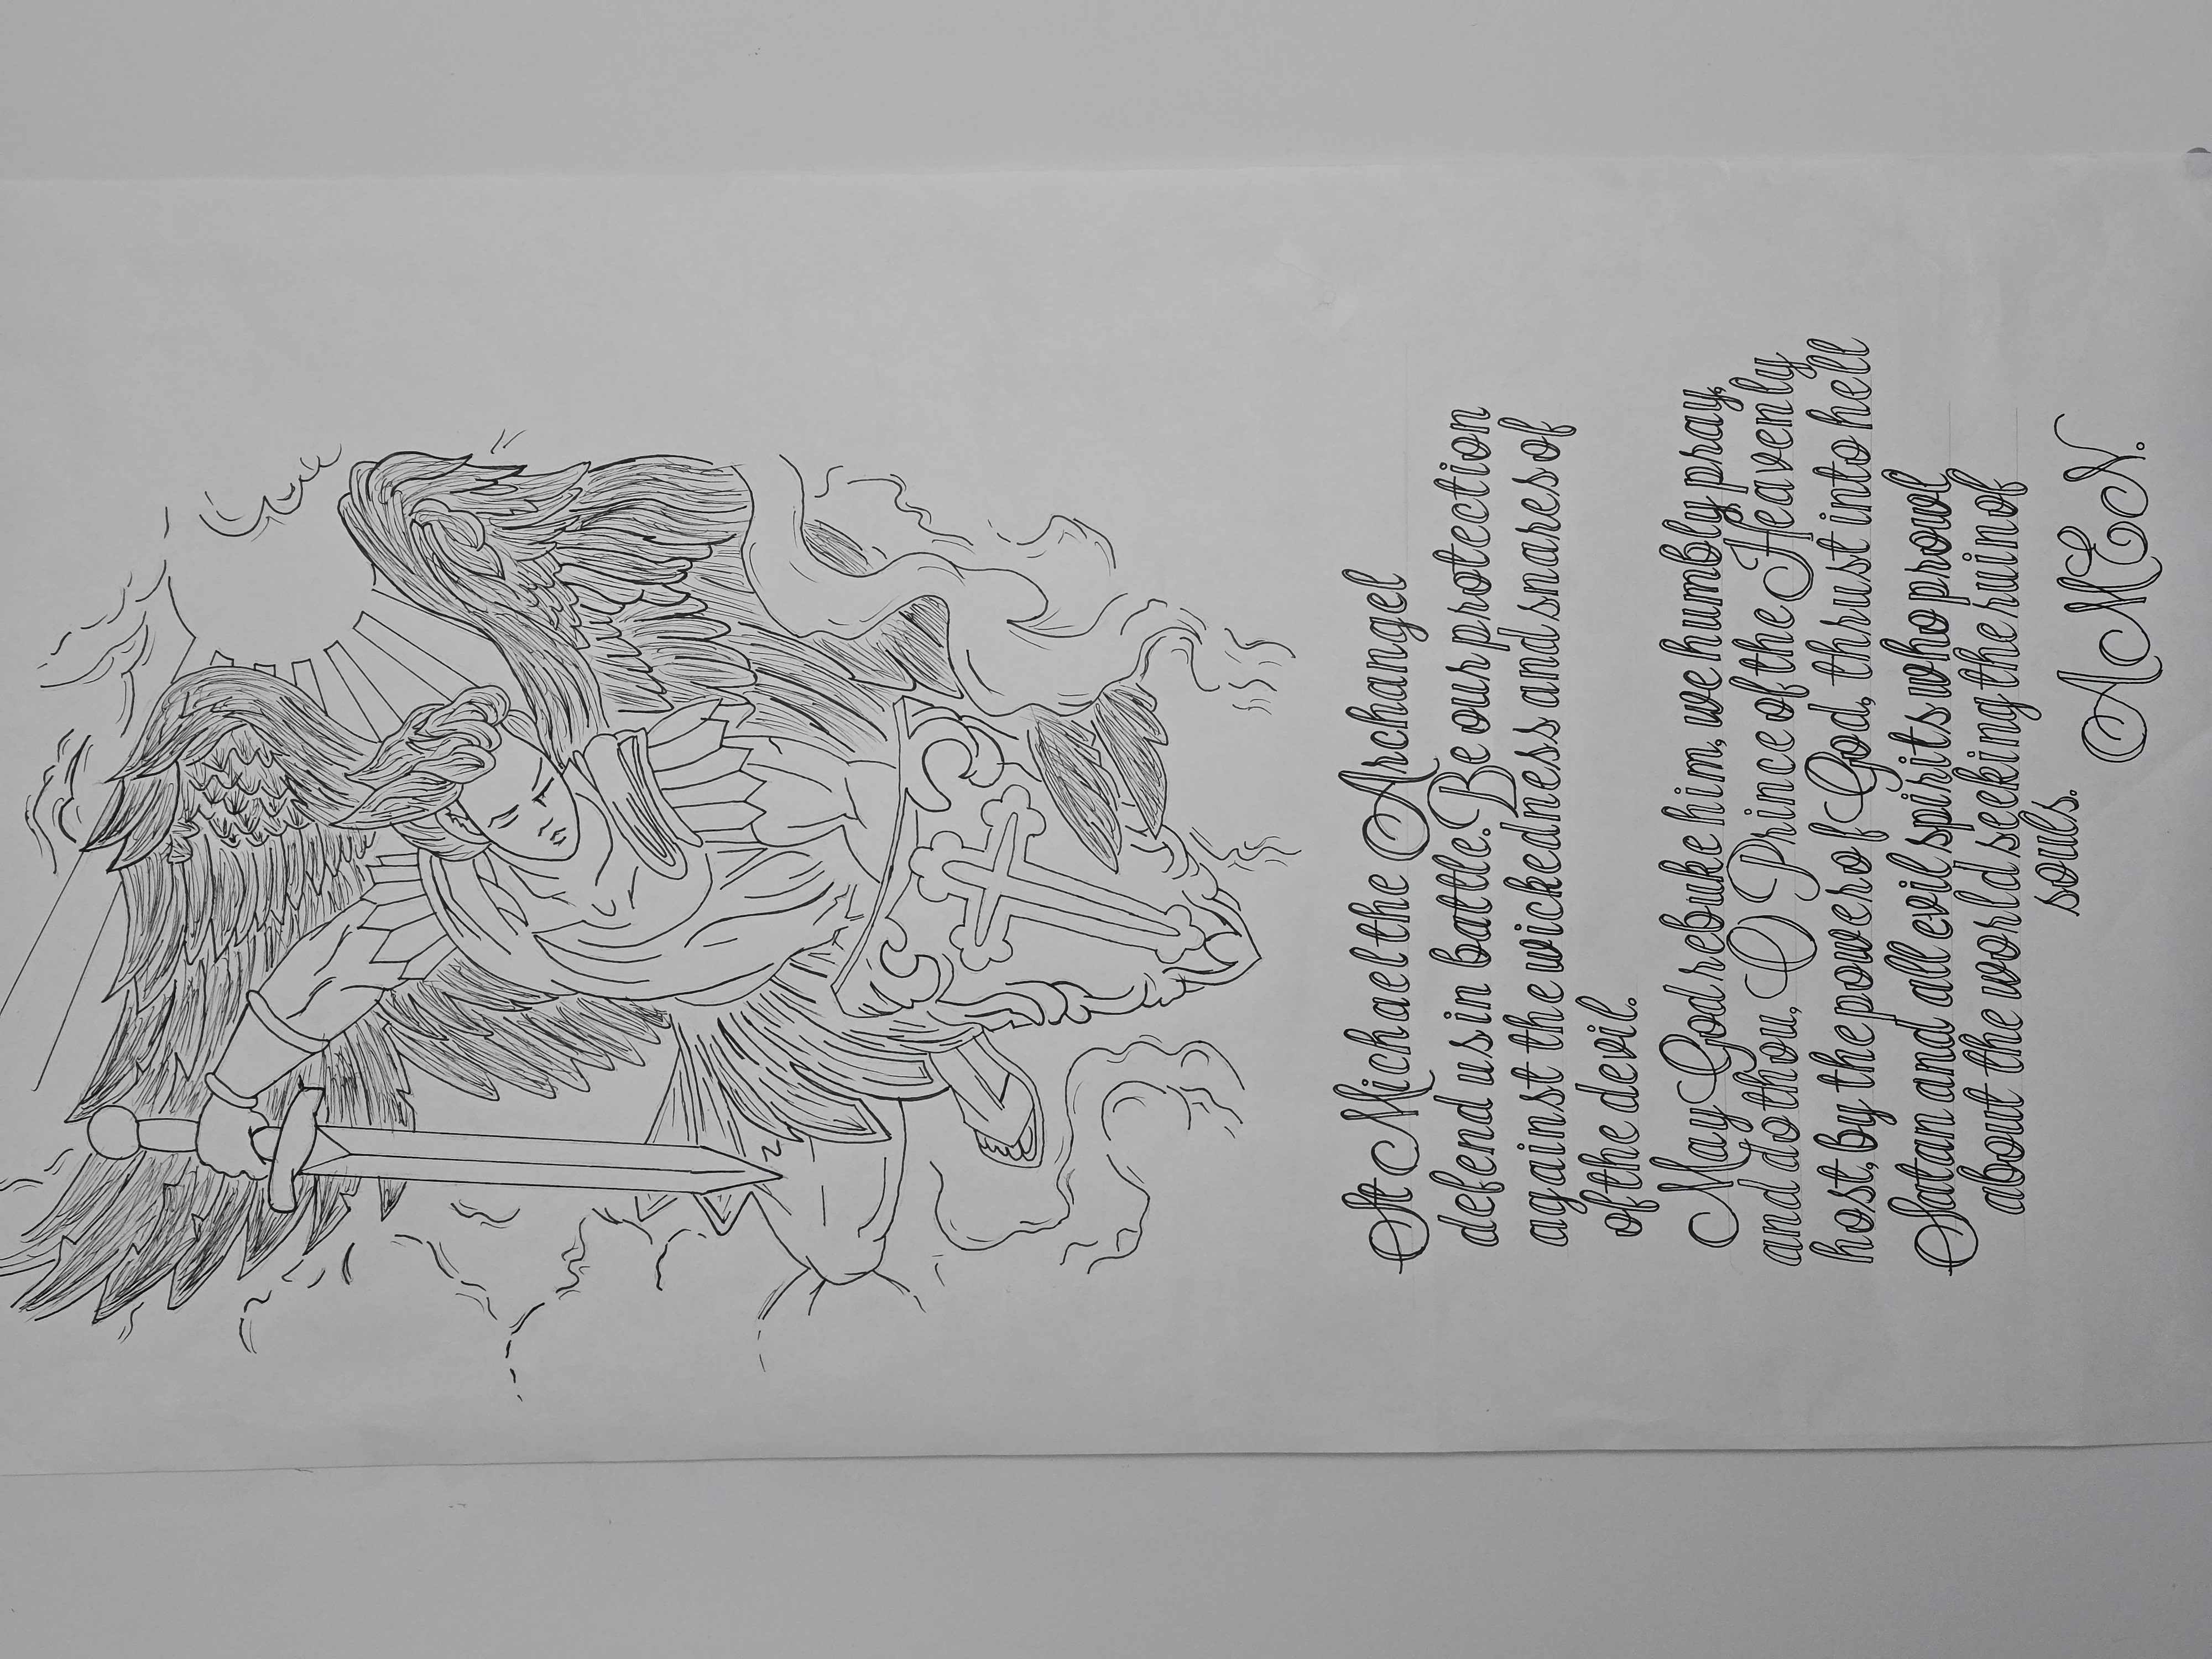 St Michael the Archangel
defend us in battle. Be our protection
against the wickedness and snares of
of the devil.
May God rebuke him, we humbly pray,
and do thou, O Prince of the Heavenly
host, by the power of God, thrust into hell
Satan and all evil spirits who prowl
about the world seeking the ruin of
souls.
AMEN.